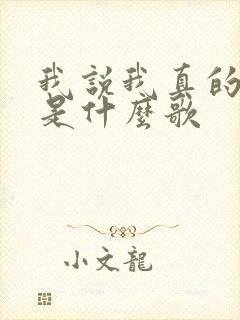 我說我真的
是什麼歌
小文龍